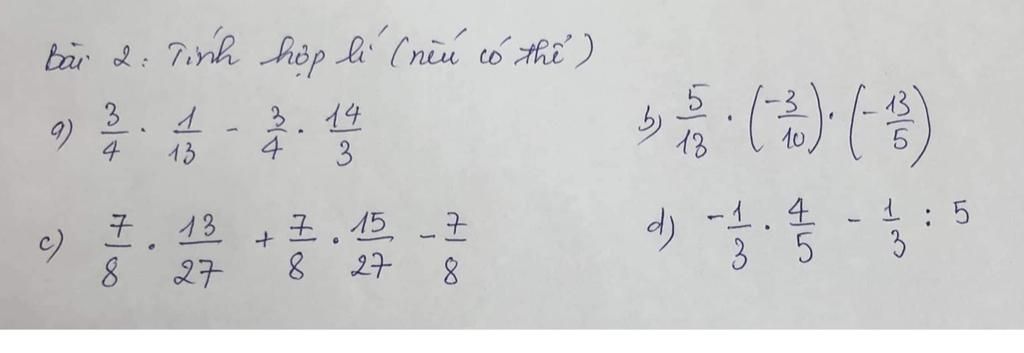 Bài 2: Tính hợp lí (nếu có thể)
a) 3/4 . 1/13 - 3/4 . 14/3
b) 5/13 . (-3/10) . (-13/5)
c) 7/8 . 13/27 + 7/8 . 15/27 - 7/8
d) -1/3 . 4/5 - 1/3 : 5